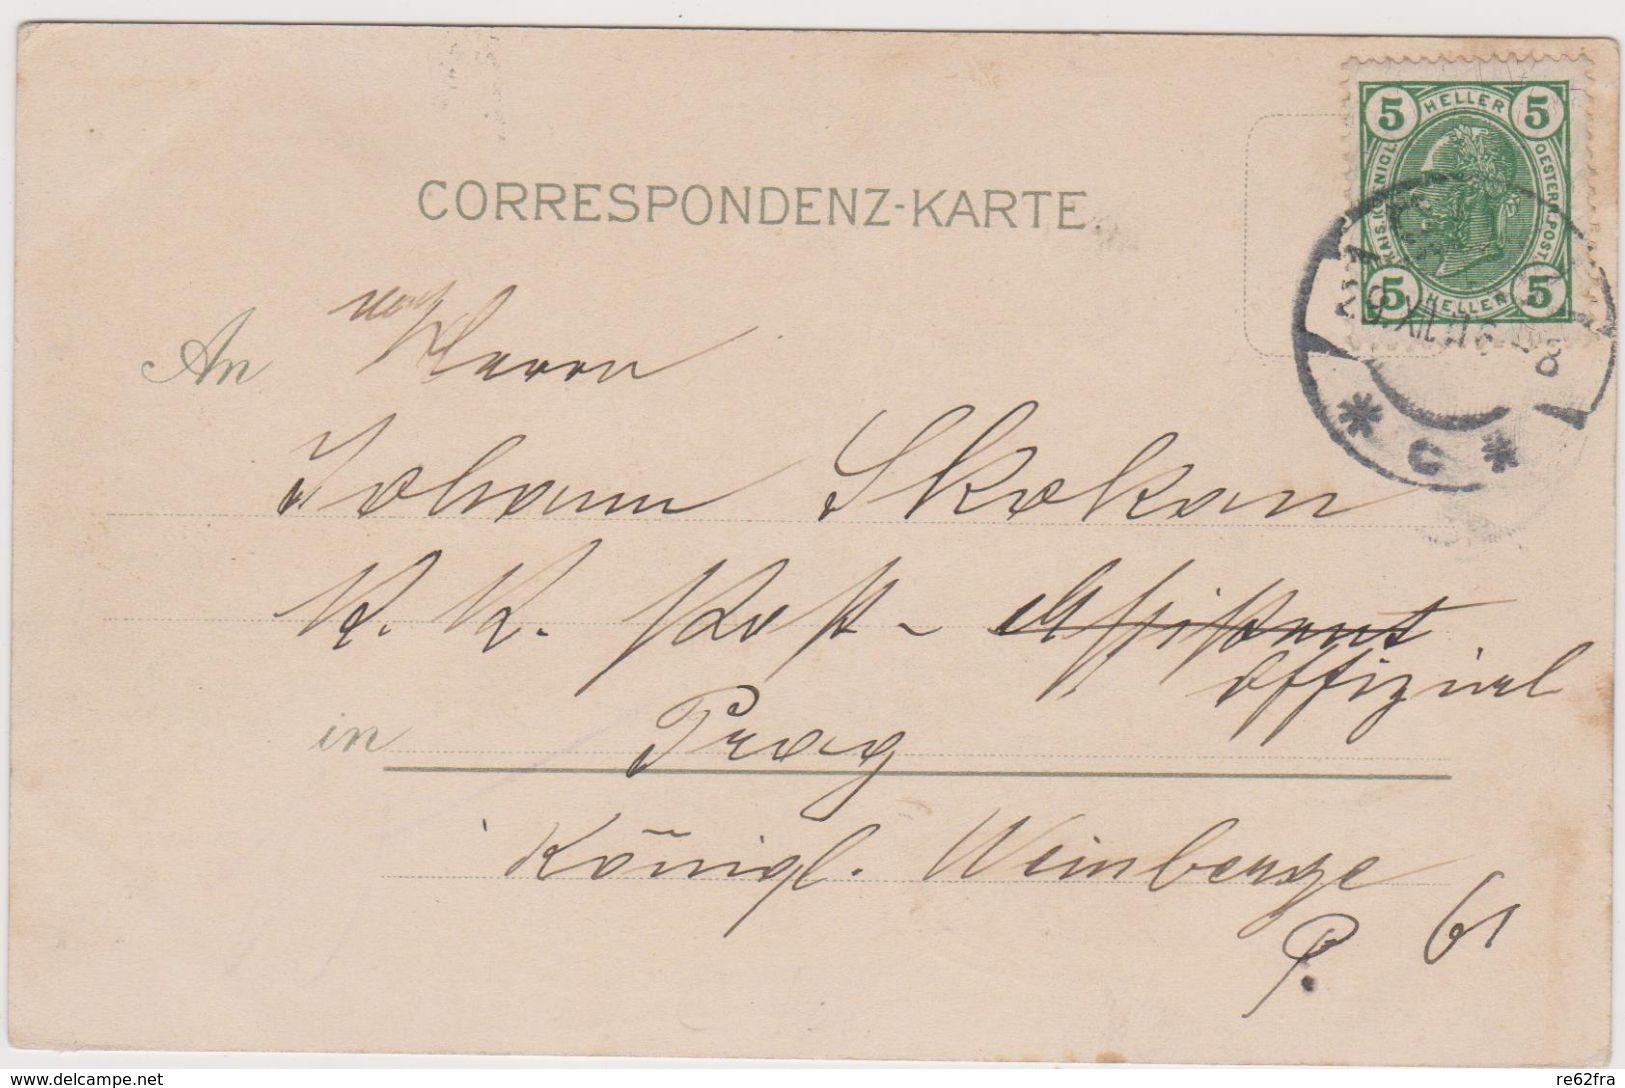 5 HELLER 5
KAIS. KÖNIGL. OESTERR. POST.
5 HELLER 5
CORRESPONDENZ-KARTE.
An Herrn
Johann Skokan
K. K. Post- Assistent
Offizial
in Prag
Königl. Weinberge
P. 61
XII
8
* C *
www.delcampe.net
re62fra